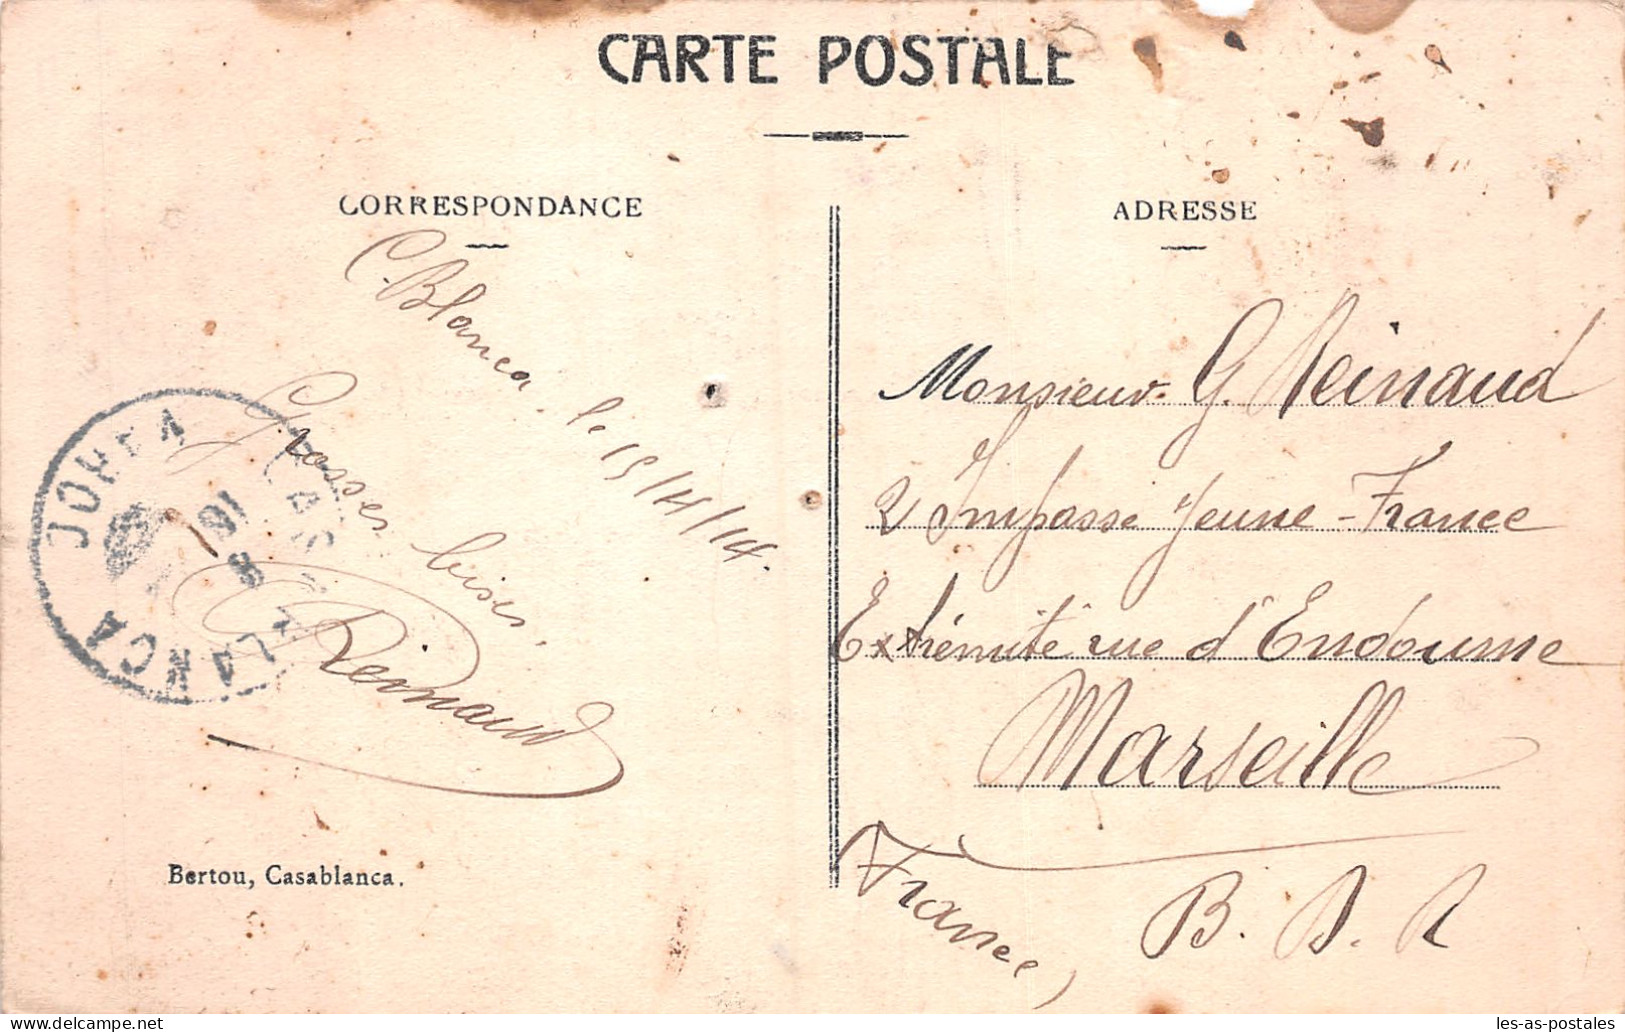 CARTE POSTALE
CORRESPONDANCE
C. Blanca. le 15/4/14.
Grosses bises.
Reinaud
CASABLANCA
16
8
Bertou, Casablanca.
ADRESSE
Monsieur G. Reinaud
2 Impasse Jeune-France
Extrémité rue d'Endoume
Marseille
B. D. R
(France)
les-as-postales